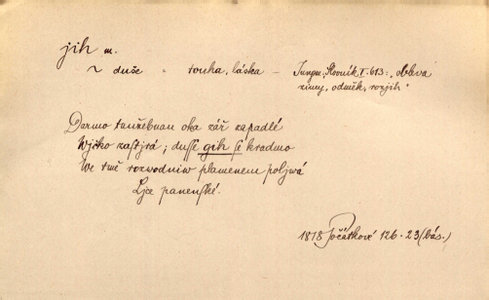 jih m.
~ duše = touha, láska – Jungm. Slovník I. 613: „obleva
zimy, odměk, rozjih“
Darmo tružebnau oka zář zapadlé
Wjčko zastjrá; dusse gih se kradmo
We tmě rozwodniw plamenem poljwá
Ljce panenské.
1818 Počátkové 126 . 23 (bás.)